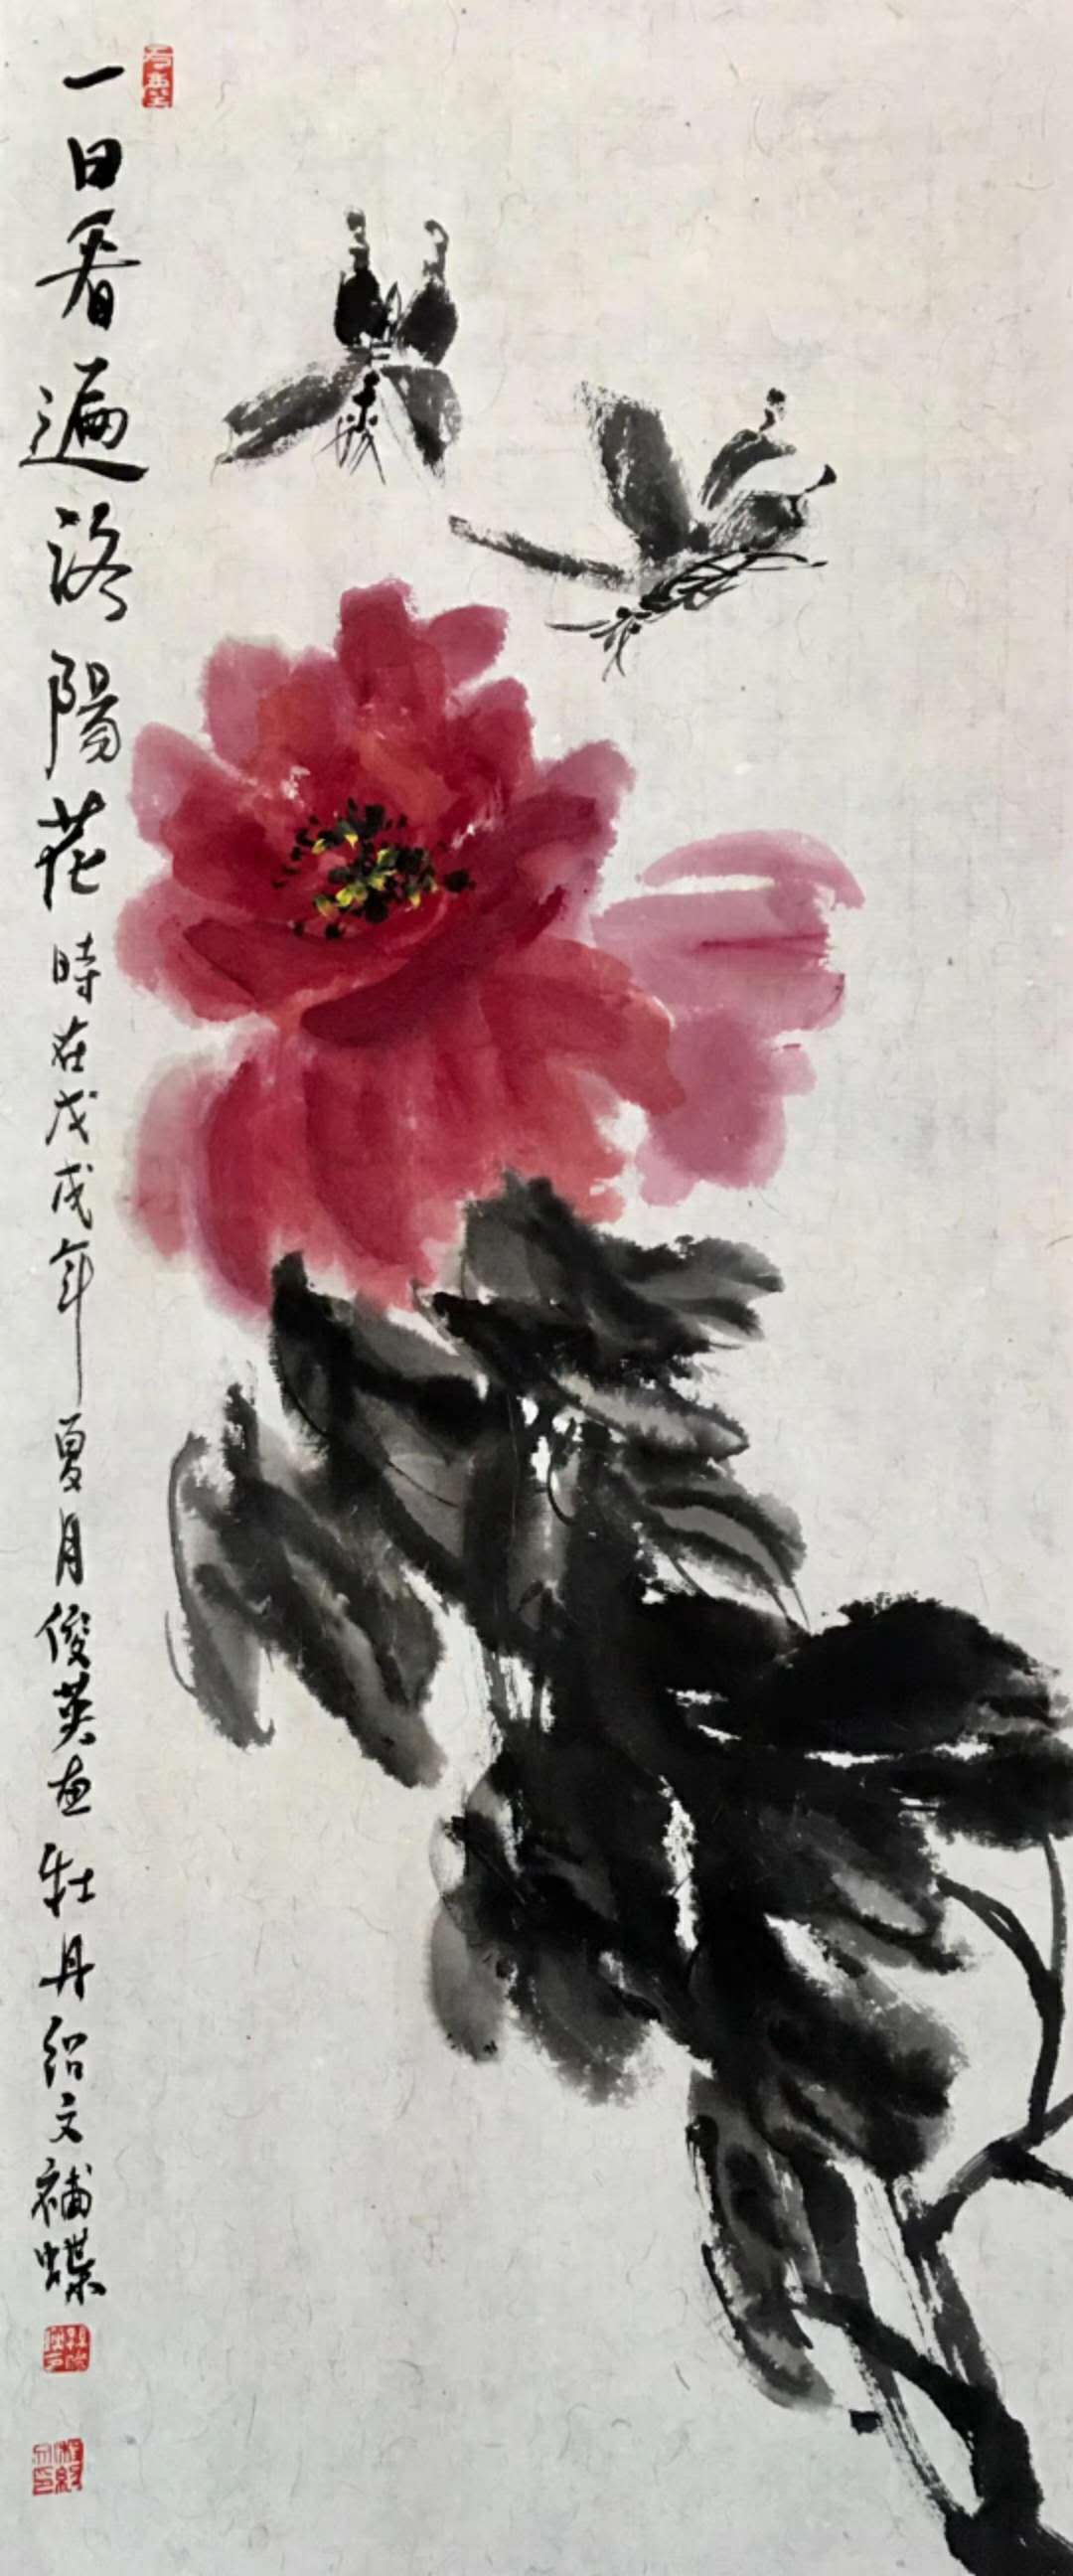 一日看遍洛陽花時在戊戌年夏月俊英畫牡丹紹文補蝶